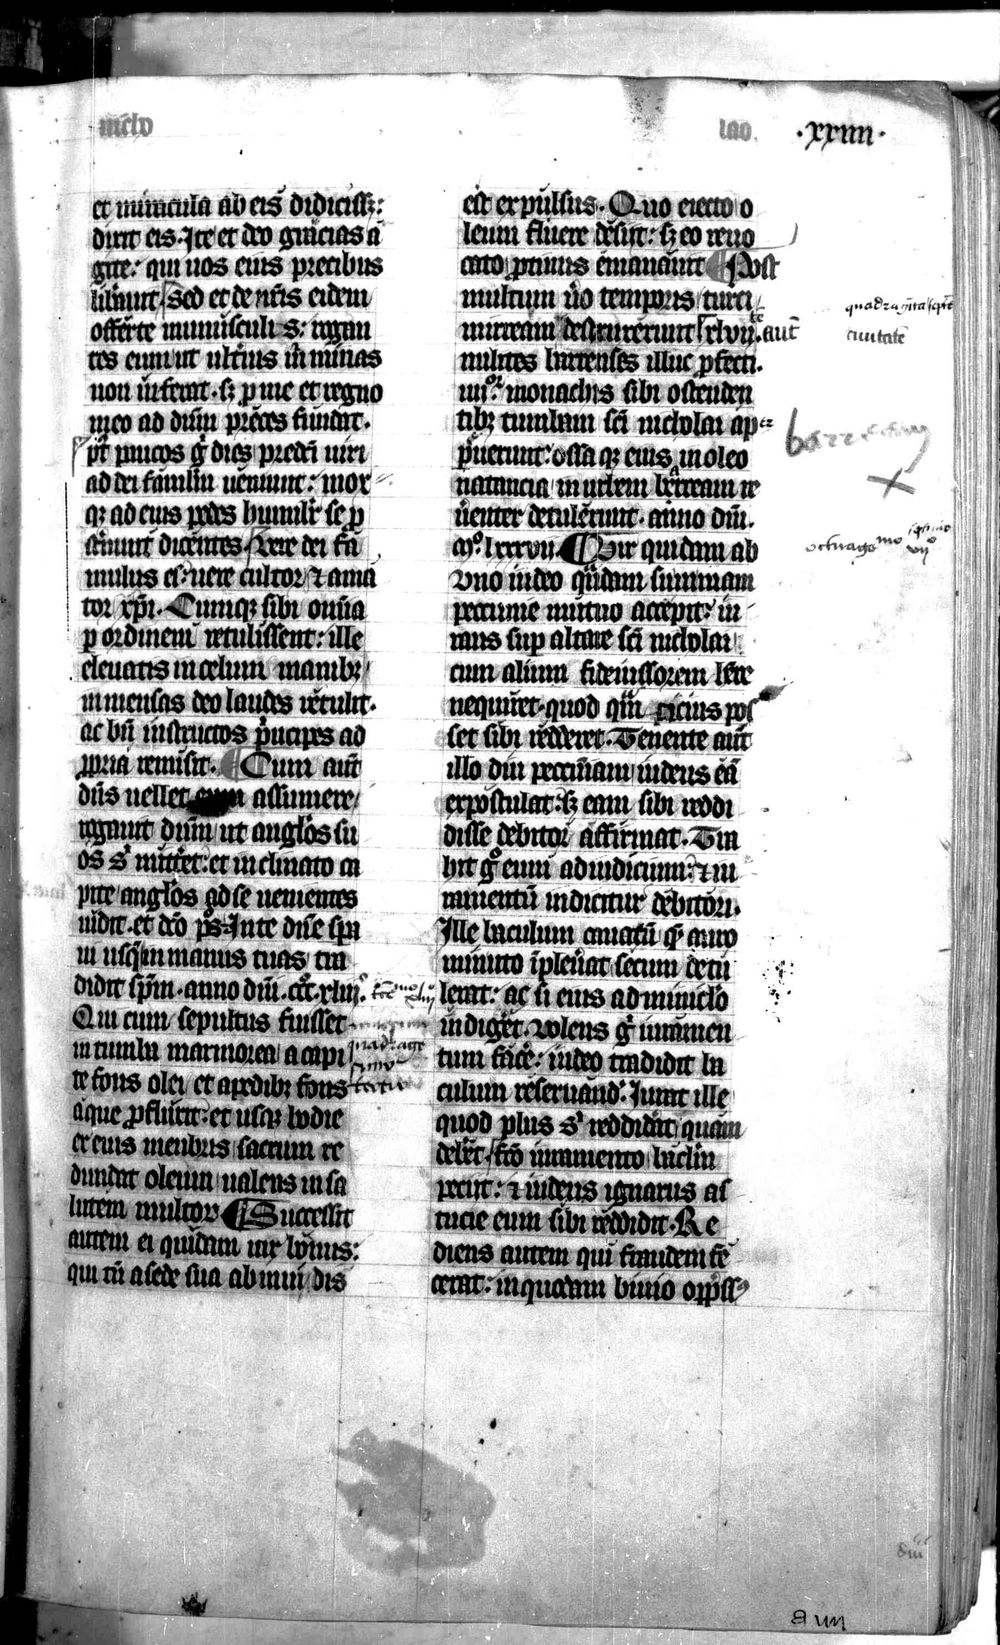 nicho
lao
·xxiiii·
et miracula ab eis didicissꝫ:
dixit eis. Ite et deo gracias a
gite: qui uos eius precibus
lib̾auit Sed et de nr̄is eidem
offerte munusculis: rogan
tes eum ut ult̾ius m̄ minas
non inferat. sꝫ ꝓ me et regno
meo ad dūm preces fundat.
pt̄ paucos gͦ dies predc̄i uiri
ad dei famlm̄ ueniunt: mox
qꝫ ad eius pedes humilit̾ se ꝓ
st̾nunt dicentes Vere dei fa
mulus es: uere cultor ⁊ ama
tor xp̄i. Cumqꝫ sibi om̄ia
ꝑ ordinem retulissent: ille
eleuatis in celum manibꝫ
inmensas deo laudes retulit.
ac bn̄ instructos p̾ncipes ad
ꝓpria remisit. ¶ Cum aut̄
dn̄s uellet eum assumere
rogauit dūm ut angl̄os su
os sͥ mitt̾et: et inclinato ca
pite angl̄os ad se uenientes
uidit. et dc̄o ps̄. In te dn̄e spa
ui usqꝫ in manus tuas tra
didit sp̄m. anno dn̄i. ccͨ. xliii.
Qui cum sepultus fuisset
in tumba marmorea a capi
te fons olei et a pedibꝫ fons
aque ꝓfluxit: et usqꝫ hodie
ex eius menbris sacrum re
dundat oleum ualens in sa
lutem multoꝝ ¶ Successit
autem ei quidam uir bonus:
qui tn̄ a sede sua ab inui dis
quadrage
simo
tertio
est expulsus. Quo eiecto o
leum fluere desiit: sꝫ eo reuo
cato ꝓtinus emanauit ¶ Post
multum ūo temporis turci
mirream destruxerunt xlvii. aut̄
milites barenses illuc ꝓfecti.
iiiiͦʳ monachis sibi ostenden
tibꝫ tumbam sc̄i nicholai ap
p̾uerunt: ossa qꝫ eius in oleo
natancia in urbem barream re
ūenter detulerunt. anno dn̄i.
Mͦ. lxxxvii. ¶ Vir quidam ab
vno iudeo q̄ndam summam
peccunie mutuo accepit: iu
rans sup altare sc̄i nicholai
cum alium fideiussorem hr̄e
nequiret. quod qm̄ cicius pos
set sibi redderet. Tenente aut̄
illo diu peccuniam iudeus eā
expostulat: sꝫ eam sibi reddi
disse debitor affirmat. Tra
hit gͦ eum ad iudicium: ⁊ iu
ramentū indicitur debitori.
Ille baculum cauatū qͤ auro
minuto īpleu̾at secum detu
lerat: ac si eius adminiclo
indiget. volens gͦ iuramen
tum face̾: iudeo tradidit ba
culum reseruand̾. Iurat ille
quod plus sͥ reddidit quam
deb̾et. fc̄o iuramento baclm̄
peciit: ⁊ iudeus ignarus as
tucie eum sibi reddidit. Re
diens autem qui fraudem fe
cerat: in quodam biuio opp̾ssꝰ
ciuitatē
a iiii